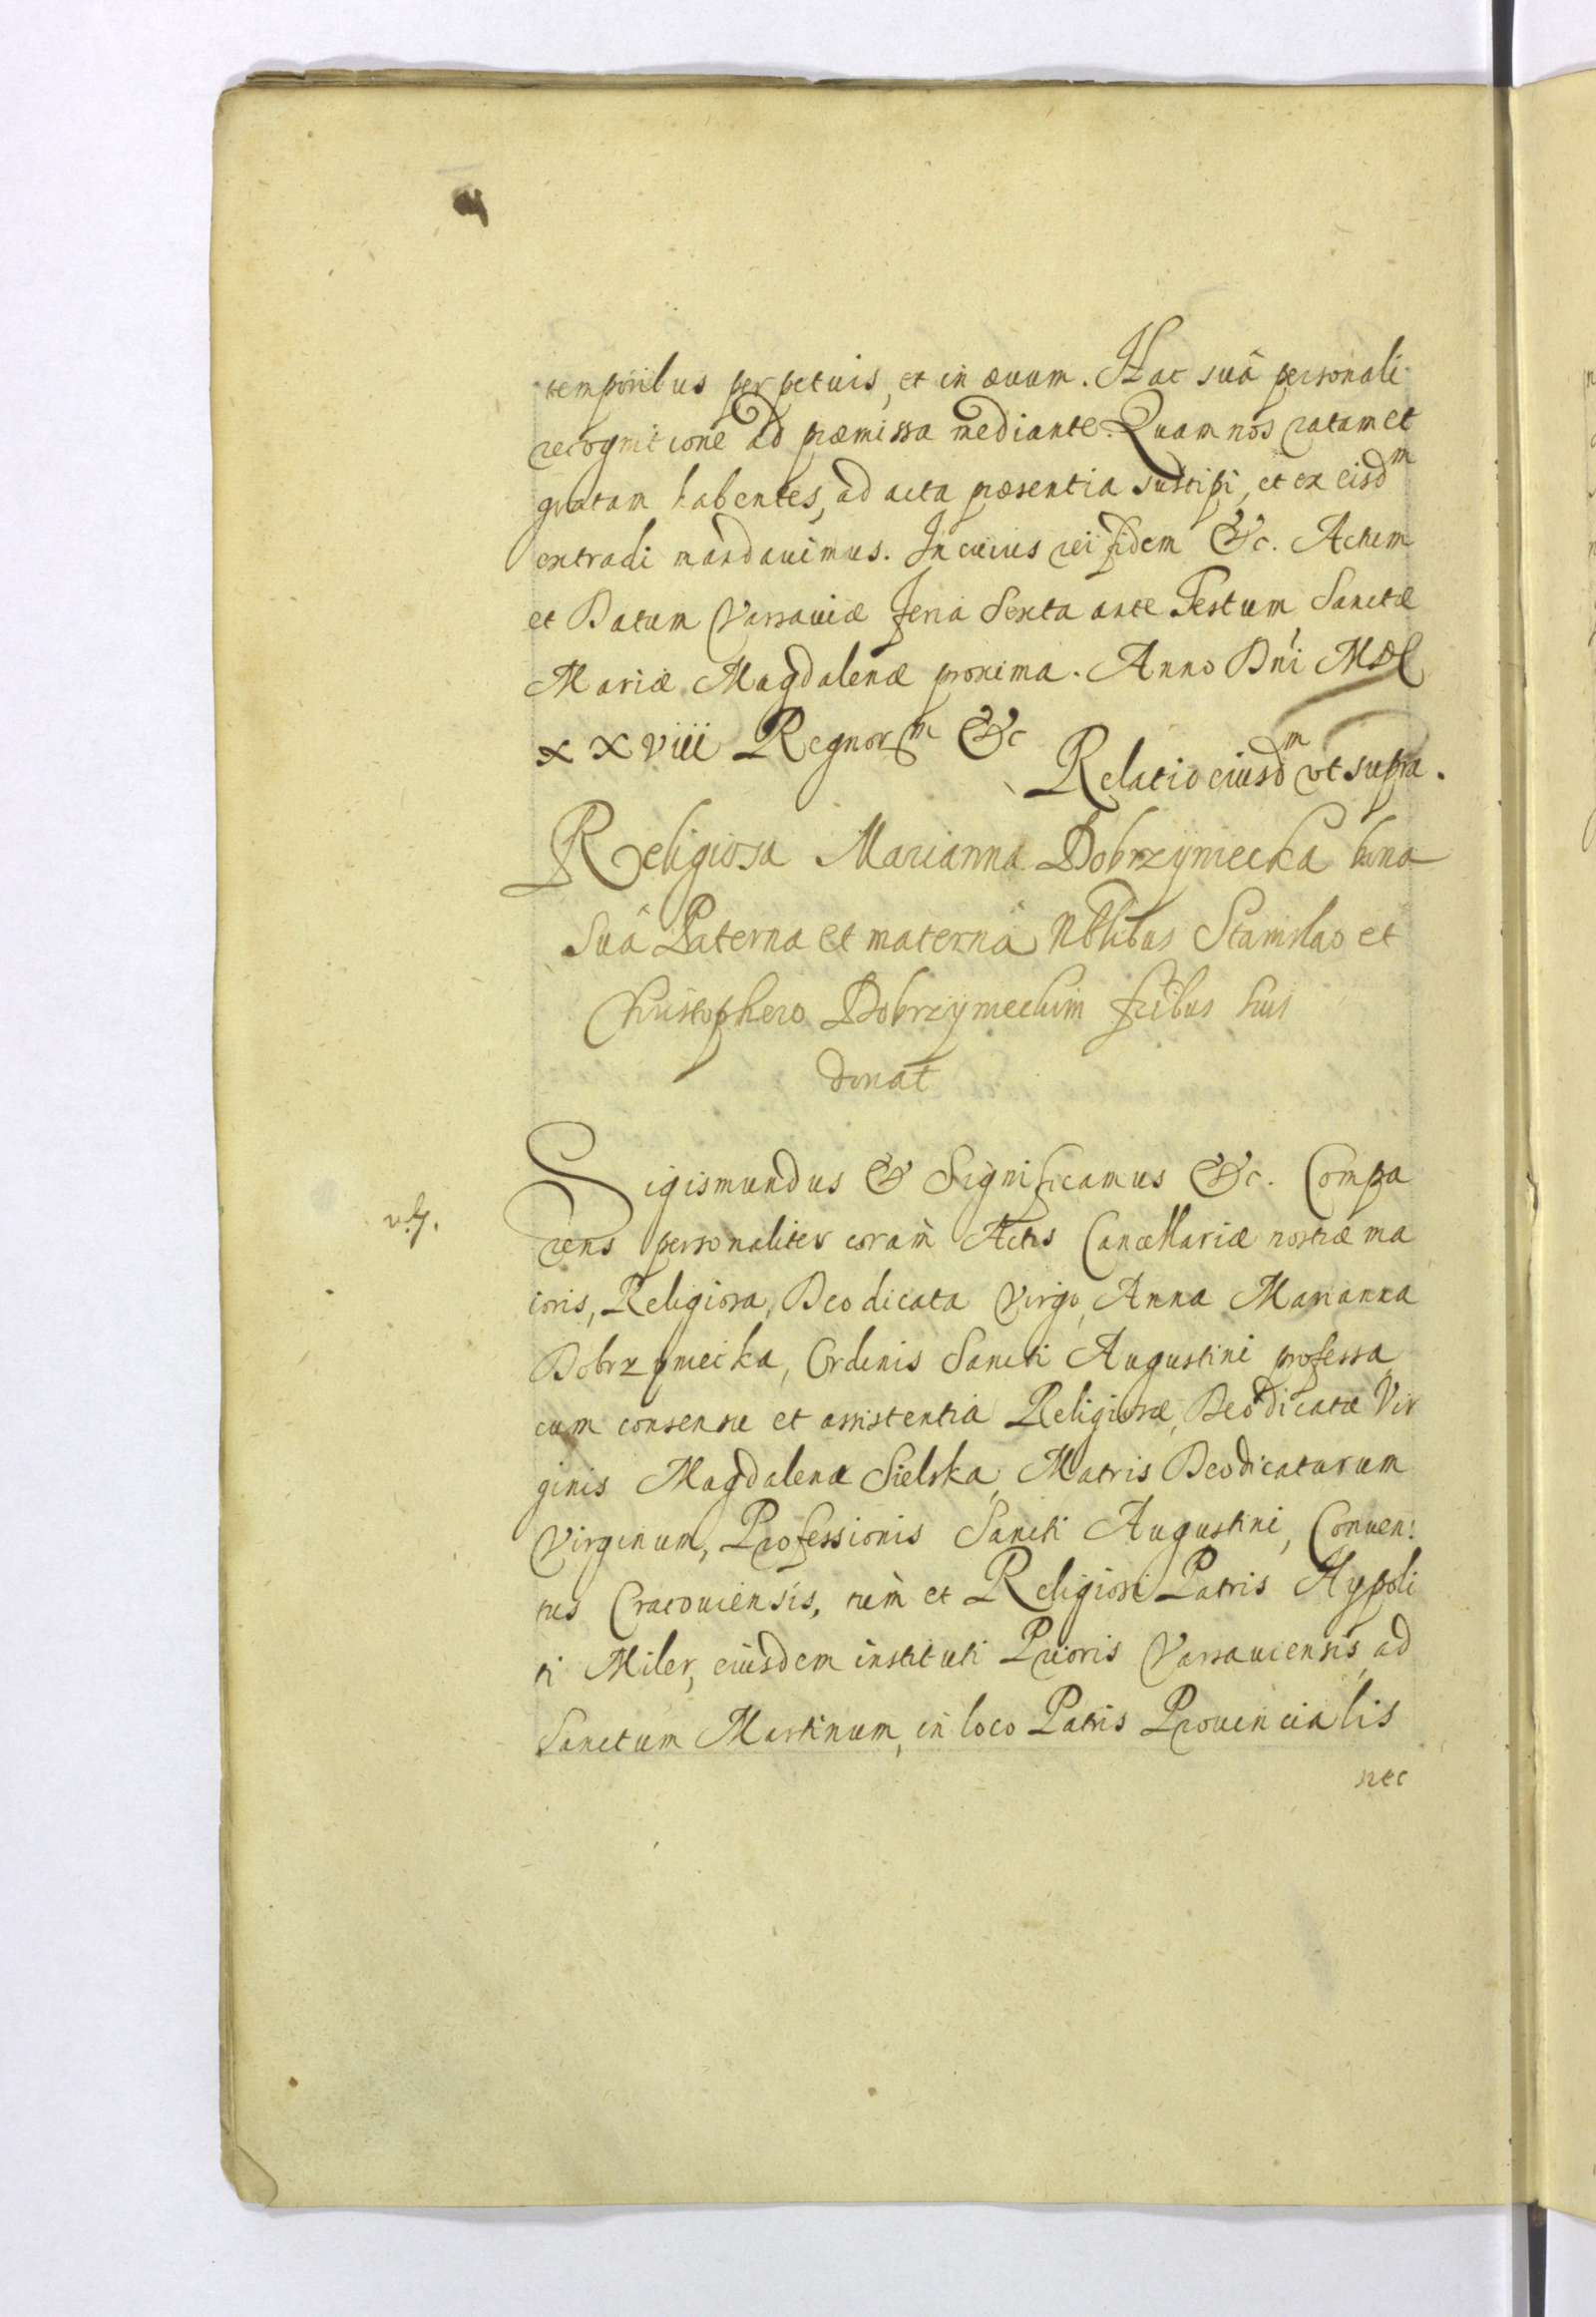 temporibus perpetuis, et in ævum. Hac suâ personali
recognitione ad præmissa mediante. Quam nos ratam et
gratam habentes, ad acta præsentia suscipi, et ex eisdm
extradi mandavimus. In cuius rei fidem &c. Actum
et Datum Varsaviæ feria Sexta ante Festum Sanctæ
Mariæ Magdalenæ proxima. Anno Dni MDC
XXviii Regnorm &c
Relatio eiusdm vt supra.
Religiosa Marianna Dobrzyniecka bona
Suâ Paterna et maternâ Nblibus Stanislao et
Christophero Dobrzynieckim fribus suis
donat
Sigismundus & Significamus &c. Compa
rens personaliter coram Actis Cancellariæ nostræ ma
ioris, Religiosa, Deo dicata Virgo, Anna Marianna
Dobrzyniecka, Ordinis Sancti Augustini professa
cum consensu et assistentia Religiosæ, Deo dicatæ Vir
ginis Magdalenæ Sielska, Matris Deo dicatarum
Virginum, Professionis Sancti Augustini, Conven:
tus Cracoviensis, tum et Religiosi Patris Hypoli
ti Miler, eiusdem instituti Prioris Varsaviensis, ad
Sanctum Martinum, in loco Patris Provincialis
nec